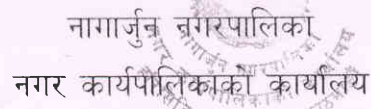 नागार्जुन नगरपालिका
नगर कार्यपालिकाको कार्यालय